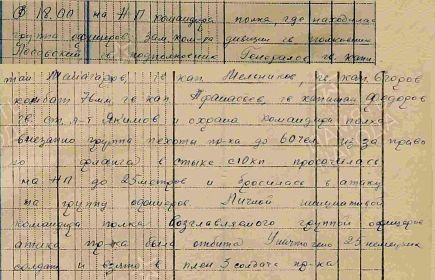 В 18.00 на НП командира полка, где находилась
группа офицеров: Зам. ком-ра дивизии гв. полковник
гв. подполковник Генералов гв. капи-
тан гв. кап. Мельников, гв. кап. Егоров
комбат гв. кап. Афанасьев, гв. капитан Федоров
гв. ст. л-т Акимов и охрана командира полка
внезапно группа пехоты пр-ка до 60 чел. из за право
го фланга в стыке с 10 кп просочилась
на НП до 25 метров и бросилась в атаку
на группу офицеров. Личной инициативой
командира полка возглавляемого группой офицеров
атака пр-ка была отбита Уничтожено 25 немецких
солдат и взято в плен 5 солдат пр-ка